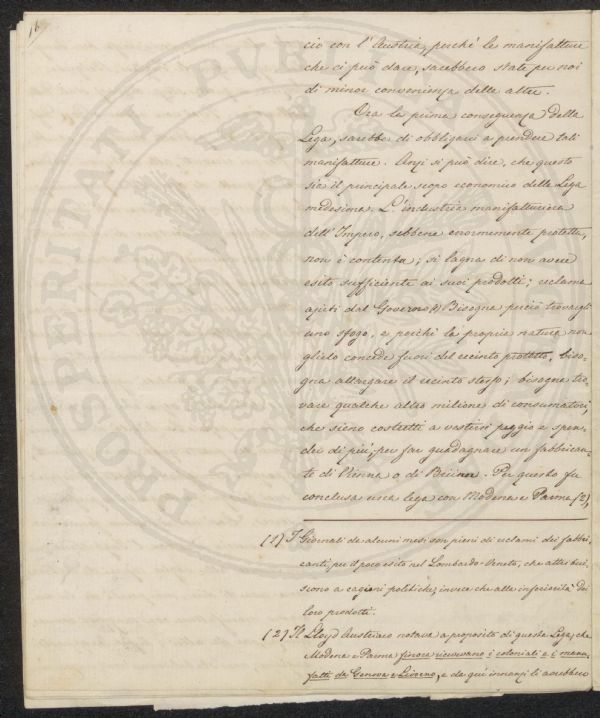 16
cio con l'Austria, perchè le manifatture
che ci può dare, sarebbero state per noi
di minor convenienza delle altre.
Ora la prima conseguenza della
Lega, sarebbe di obbligarci a prendere tali
manifatture. Anzi si può dire, che questo
sia il principale scopo economico della Lega
medesima. L'industria manifatturiera
dell'Impero, sebbene enormemente protetta,
non è contenta; si lagna di non avere
esito sufficiente ai suoi prodotti; reclama
ajuti dal Governo (1) Bisogna perciò trovargli
uno sfogo, e perchè la propria natura non
glielo concede fuori del recinto protetto, biso-
gna allargare il recinto stesso; bisogna tro-
vare qualche altro milione di consumatori,
che sieno costretti a vestirsi peggio e spen-
der di più, per far guadagnare un fabbrican-
te di Vienna o di Brünn. Per questo fu
conclusa una lega con Modena e Parma (2),
(1) I Giornali da alcuni mesi son pieni di reclami dei fabbri-
canti, per il poco esito nel Lombardo-Veneto, che attribui-
scono a cagioni politiche, invece che alla inferiorità dei
loro prodotti.
(2) Il Lloyd Austriaco notava a proposito di questa Lega, che
Modena e Parma finora ricevevano i coloniali e i manu-
fatti da Genova e Livorno, e da quì innanzi li avrebbero
PROSPERITATI PUBLICAE